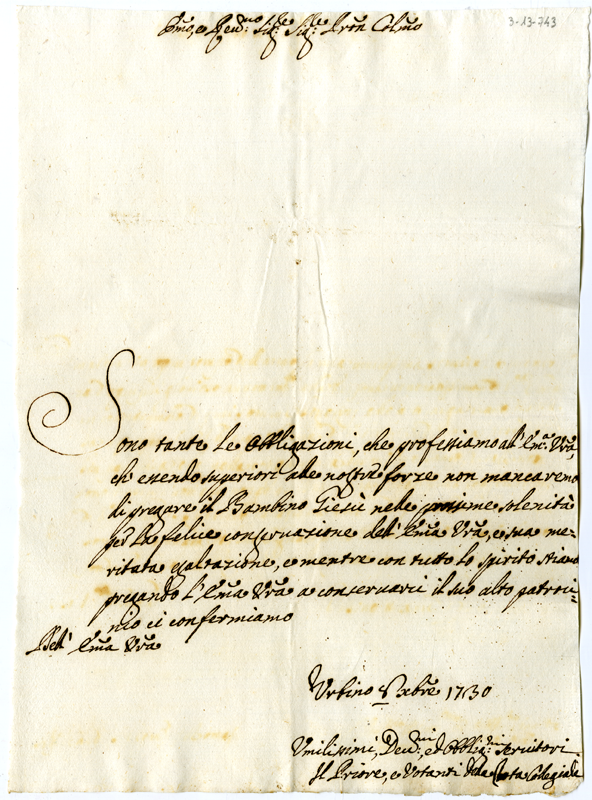 3-13-743
Emo, e Revmo Sigre Sigre Pron Colmo
Sono tante le obbligazioni, che professiamo all' Ema Vra
ch' essendo superiori alle nostre forze non mancaremo
di pregare il Bambino Giesù nelle prossime solenità
per la felice conservazione dell' Ema Vra, e sua me=
ritata esaltazione, e mentre con tutto lo spirito stiamo
pregando l' Ema Vra a conservarci il suo alto patroci=
nio ci confermiamo
Dell' Ema Vra
Urbino Xbre 1730
Umilissimi, Devmi, ed Obbligmi Servitori
Il Priore, e Votanti della Rota Collegiale